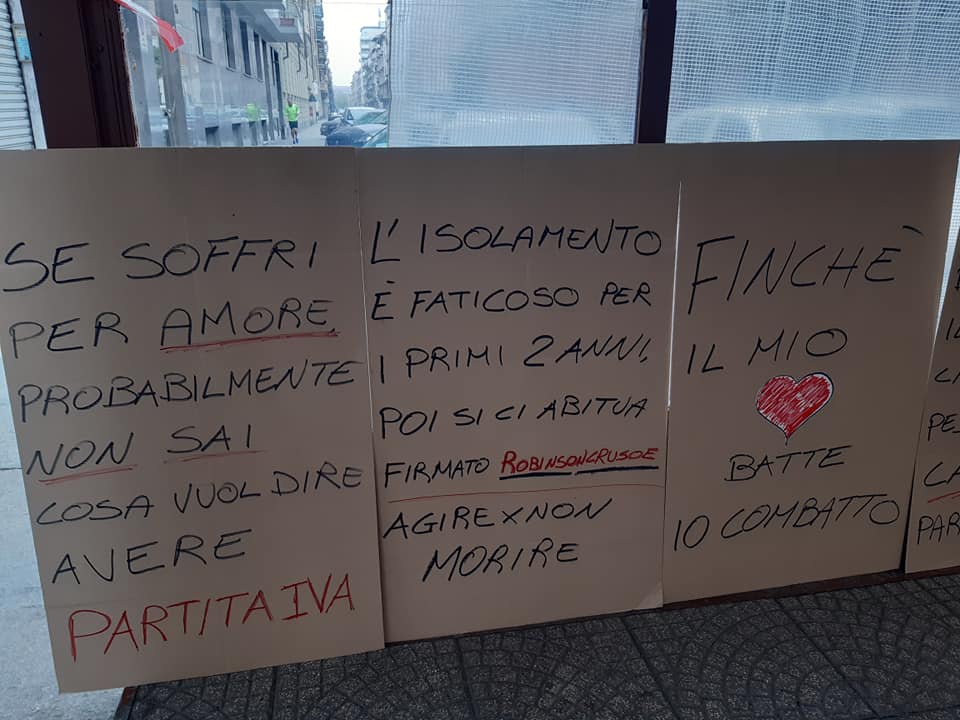 SE SOFFRI
PER AMORE
PROBABILMENTE
NON SAI
COSA VUOL DIRE
AVERE
PARTITA IVA
L'ISOLAMENTO
È FATICOSO PER
I PRIMI 2 ANNI,
POI SI CI ABITUA
FIRMATO ROBINSONCRUSOE
AGIRE X NON
MORIRE
FINCHÈ
IL MIO
BATTE
IO COMBATTO